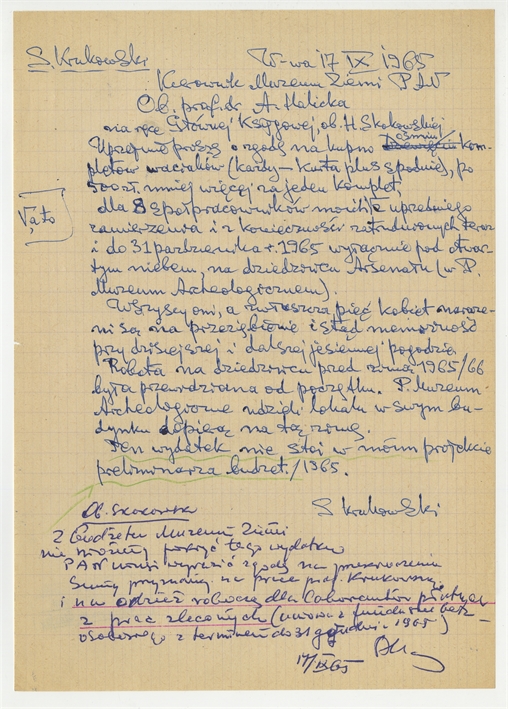 S. Krukowski
W-wa 17 IX 1965
Kierownik Muzeum Ziemi PAN
Ob. prof. dr A. Halicka
na ręce Głównej Księgowej ob. H. Skokowskiej
Uprzejmie proszę o zgodę na kupno ośmiu kom-
pletów waciaków (każdy – kurta plus spodnie), po
500 zł mniej więcej za jeden komplet,
dla 8 współpracowników moich, z uprzedniego
zamierzenia i z konieczności zatrudnionych teraz
i do 31 października r. 1965 wyłącznie pod otwar-
tym niebem, na dziedzińcu Arsenału (w P.
Muzeum Archeologicznem).
Wszyscy oni, a zwłaszcza pięć kobiet naraże-
ni są na przeziębienie i stąd niemożność
przy dzisiejszej i dalszej jesiennej pogodzie.
Robota na dziedzińcu przed zimą 1965/66
była przewidziana od początku. P. Muzeum
Archeologiczne udzieli lokalu w swym bu-
dynku dopiero na tą zimę.
Ten wydatek nie stoi w moim projekcie
preliminarza budżet./1965.
S Krukowski
Ob. Skokowska
Z budżetu Muzeum Ziemi
nie możemy pokryć tego wydatku
PAN musi wyrazić zgodę na
sumy przyznanej na prace prof. Krukowskiego
i na odzież roboczą dla laborantów płatnych
z prac zleconych (umowa z funduszu bez-
osobowego z terminem do 31 grudnia 1965)
17/IX 65